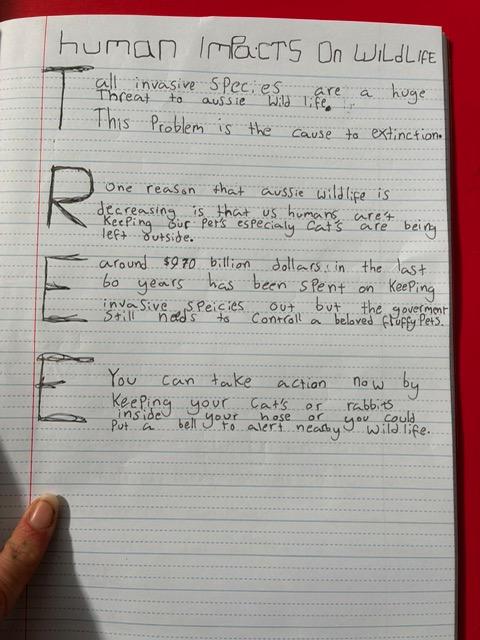 Human Impacts On Wildlife
T
all invasive species are a huge
Threat to aussie wild life.
This Problem is the cause to extinction.
R
One reason that aussie wildlife is
decreasing is that us humans are't
Keeping our Pets especialy Cat's are being
left outside.
E
around $970 billion dollars in the last
60 years has been spent on Keeping
invasive speicies out but the goverment
Still needs to Controll a beloved fluffy Pets.
E
You can take action now by
Keeping your Cat's or rabbits
inside your hose or you could
Put a bell to alert nearby wildlife.